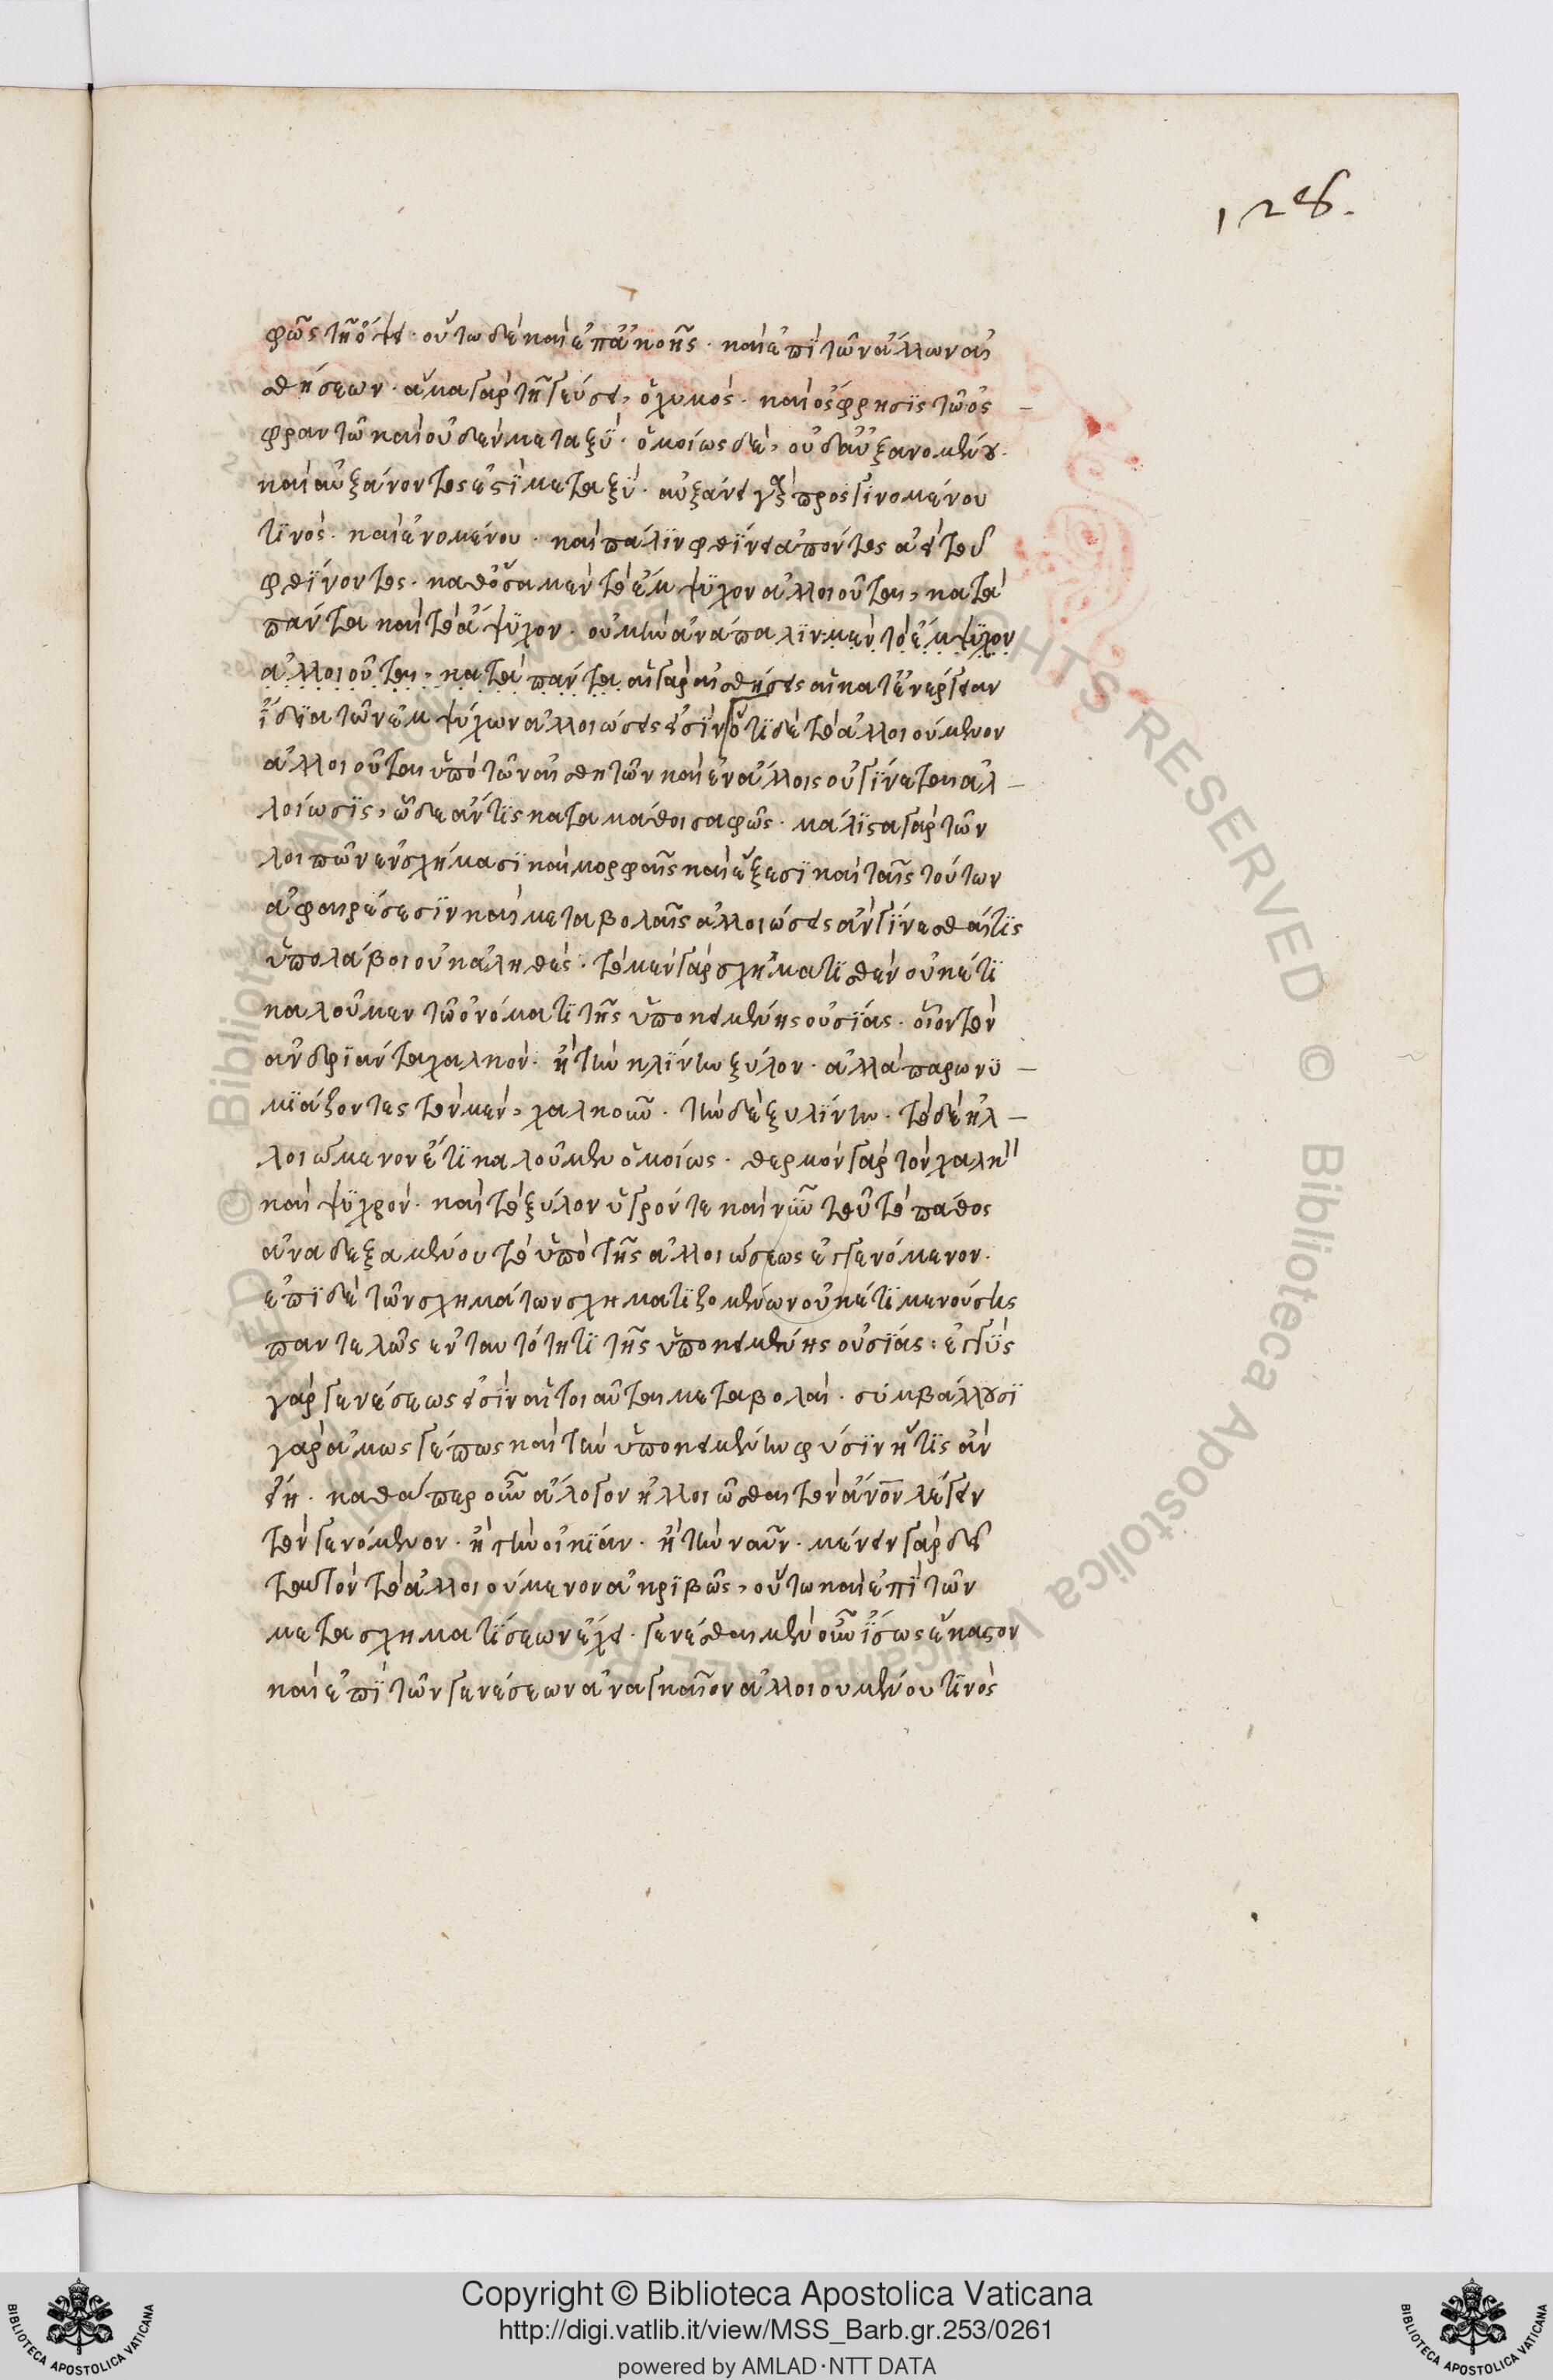 128.
φῶς τῆ ὄψει· οὕτω δὲ καὶ ἐπ' ἀκοῆς· καὶ ἐπὶ τῶν ἄλλων αἰ
σθήσεων· ἅμα γὰρ τῆ γεύσει, ὁ χυμός· καὶ ὄσφρησϊς τῶ ὀσ-
φραντῶ καὶ οὐδὲν μεταξΰ· ὁμοίως δὲ, οὐδ' αὐξανομένου·
καὶ αὐξάνοντος ἐστὶ μεταξΰ· αὐξάνει γὰρ προσγινομένου
τϊνός· καὶ ἑνομένου· καὶ πάλϊν φθίνει ἀπόντος
φθίνοντος· καθ' ὅσα μὲν τὸ ἔμψϋχον ἀλλοιοῦται, κατὰ
πάντα καὶ τὸ ἄψϋχον· οὐ μὴν ἀνάπαλϊν· μὲν τὸ ἔμψϋχον
ἀλλοιοῦται, κατὰ πάντα αἱ γὰρ αἰσθήσεις αἱ κατ' ἐνέργειαν
ἴδϊα τῶν ἐμψύχων ἀλλοιώσεις εἰσὶν ὅτϊ δὲ τὸ ἀλλοιούμενον
ἀλλοιοῦται ὑπὸ τῶν αἰσθητῶν καὶ ἐν ἄλλοις οὐ γίνεται ἀλ-
λοίωσϊς, ὧδε ἄν τϊς καταμάθοι σαφῶς· μάλϊστα γὰρ τῶν
λοιπῶν ἐν σχήμασϊ καὶ μορφαῖς καὶ ἕξεσϊ καὶ ταῖς τούτων
ἀφαιρέσεσϊν καὶ μεταβολαῖς ἀλλοιώσεις ἂν γίνεσθαί τϊς
ὑπολάβοι οὐκ ἀληθές· τὸ μὲν γὰρ σχηματϊσθὲν οὐκέτϊ
καλοῦμεν τῶ ὀνόματϊ τῆς ὑποκειμένης οὐσίας· οἷον τὸν
ἀνδρϊάντα χαλκὸν· ἢ τὴν κλίνην ξύλον· ἀλλὰ παρωνϋ-
μϊάζοντες τὸν μὲν, χαλκοῦν· τὴν δὲ ξυλίνην· τὸ δὲ ἠλ-
λοιωμένον ἔτϊ καλοῦμεν ὁμοίως· θερμὸν γὰρ τὸν χαλκ
καὶ ψϋχρόν· καὶ τὸ ξύλον ὑγρόν τε καὶ νῦν τοῦ τὸ πάθος
ἀναδεξαμένου τὸ ὑπὸ τῆς ἀλλοιώσεως ἐγγενόμενον·
ἐπὶ δὲ τῶν σχημάτων σχηματϊζομένων οὐκέτϊ μενούσης
παντελῶς ἐν ταυτότητϊ τῆς ὑποκειμένης οὐσίας: ἐγγὺς
γὰρ γενέσεως εἰσὶν αἱ τοιαῦται μεταβολαὶ· συμβάλλουσϊ
γὰρ ἄμως γέ πως καὶ τὴν ὑποκειμένην φύσϊν ἥτϊς ἂν
εἴη· καθάπερ οὖν ἄλογον ἠλλοιῶσθαι τὸν ἄνον λέγειν
τὸν γενόμενον· ἢ τὴν οἰκίαν· ἢ τὴν ναῦν· μένειν γὰρ δεῖ
ταυτὸν τὸ ἀλλοιούμενον ἀκριβῶς, οὕτω καὶ ἐπὶ τῶν
μετασχηματίσεων ἔχει· γενέσθαι μὲν οὖν ἴσως ἕκαστον
καὶ ἐπὶ τῶν γενέσεων ἀναγκαῖον ἀλλοιουμένου τϊνὸς
Copyright © Biblioteca Apostolica Vaticana
http://digi.vatlib.it/view/MSS_Barb.gr.253/0261
powered by AMLAD·NTT DATA
BIBLIOTECA APOSTOLICA VATICANA
BIBLIOTECA APOSTOLICA VATICANA